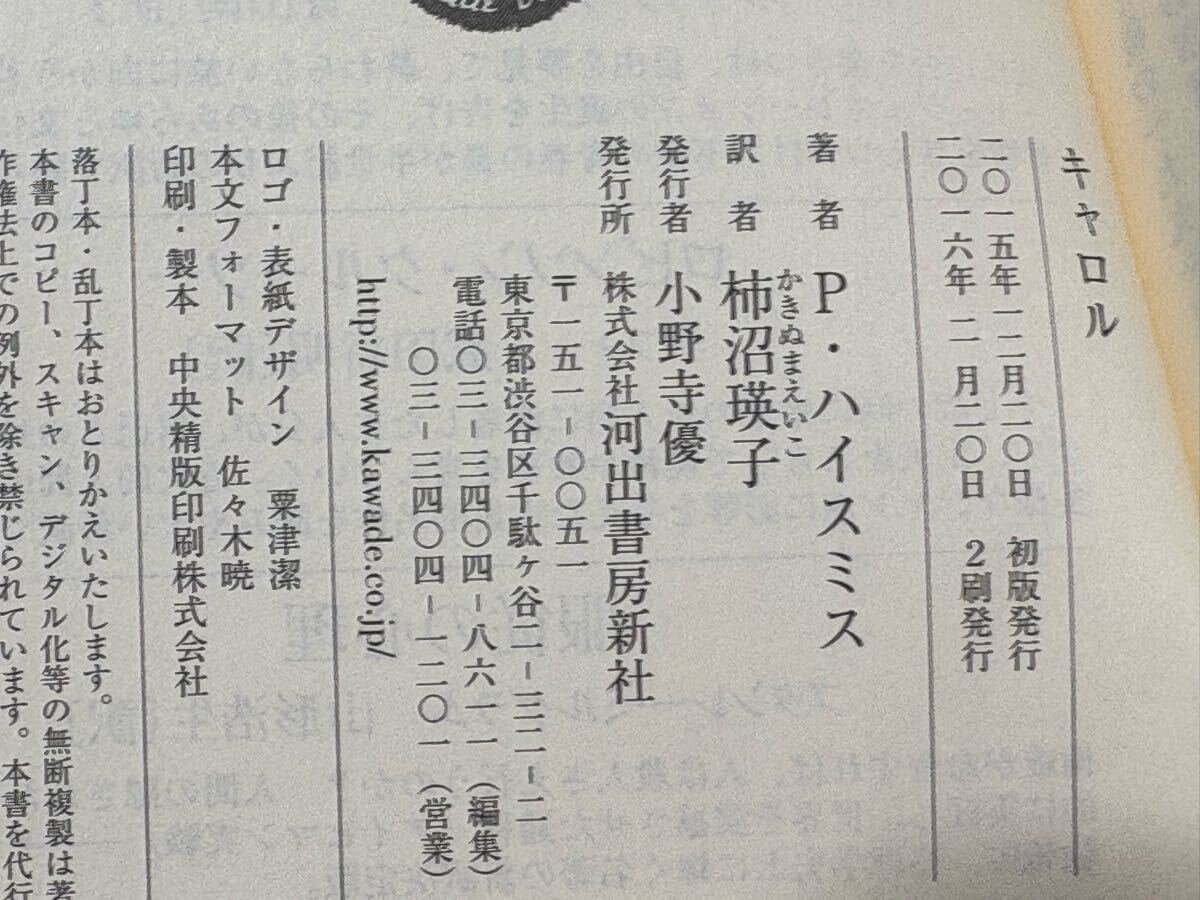 キャロル
二〇一五年一二月二〇日 初版発行
二〇一六年 二 月二〇日 2刷発行
著 者 P・ハイスミス
訳 者 柿沼瑛子
かきぬまえいこ
発行者 小野寺優
発行所 株式会社河出書房新社
〒一五一-〇〇五一
東京都渋谷区千駄ヶ谷二-三二-二
電話〇三-三四〇四-八六一一(編集)
〇三-三四〇四-一二〇一(営業)
http://www.kawade.co.jp/
ロゴ・表紙デザイン 粟津潔
本文フォーマット 佐々木暁
印刷・製本 中央精版印刷株式会社
落丁本・乱丁本はおとりかえいたします。
本書のコピー、スキャン、デジタル化等の無断複製は著
作権法上での例外を除き禁じられています。本書を代行